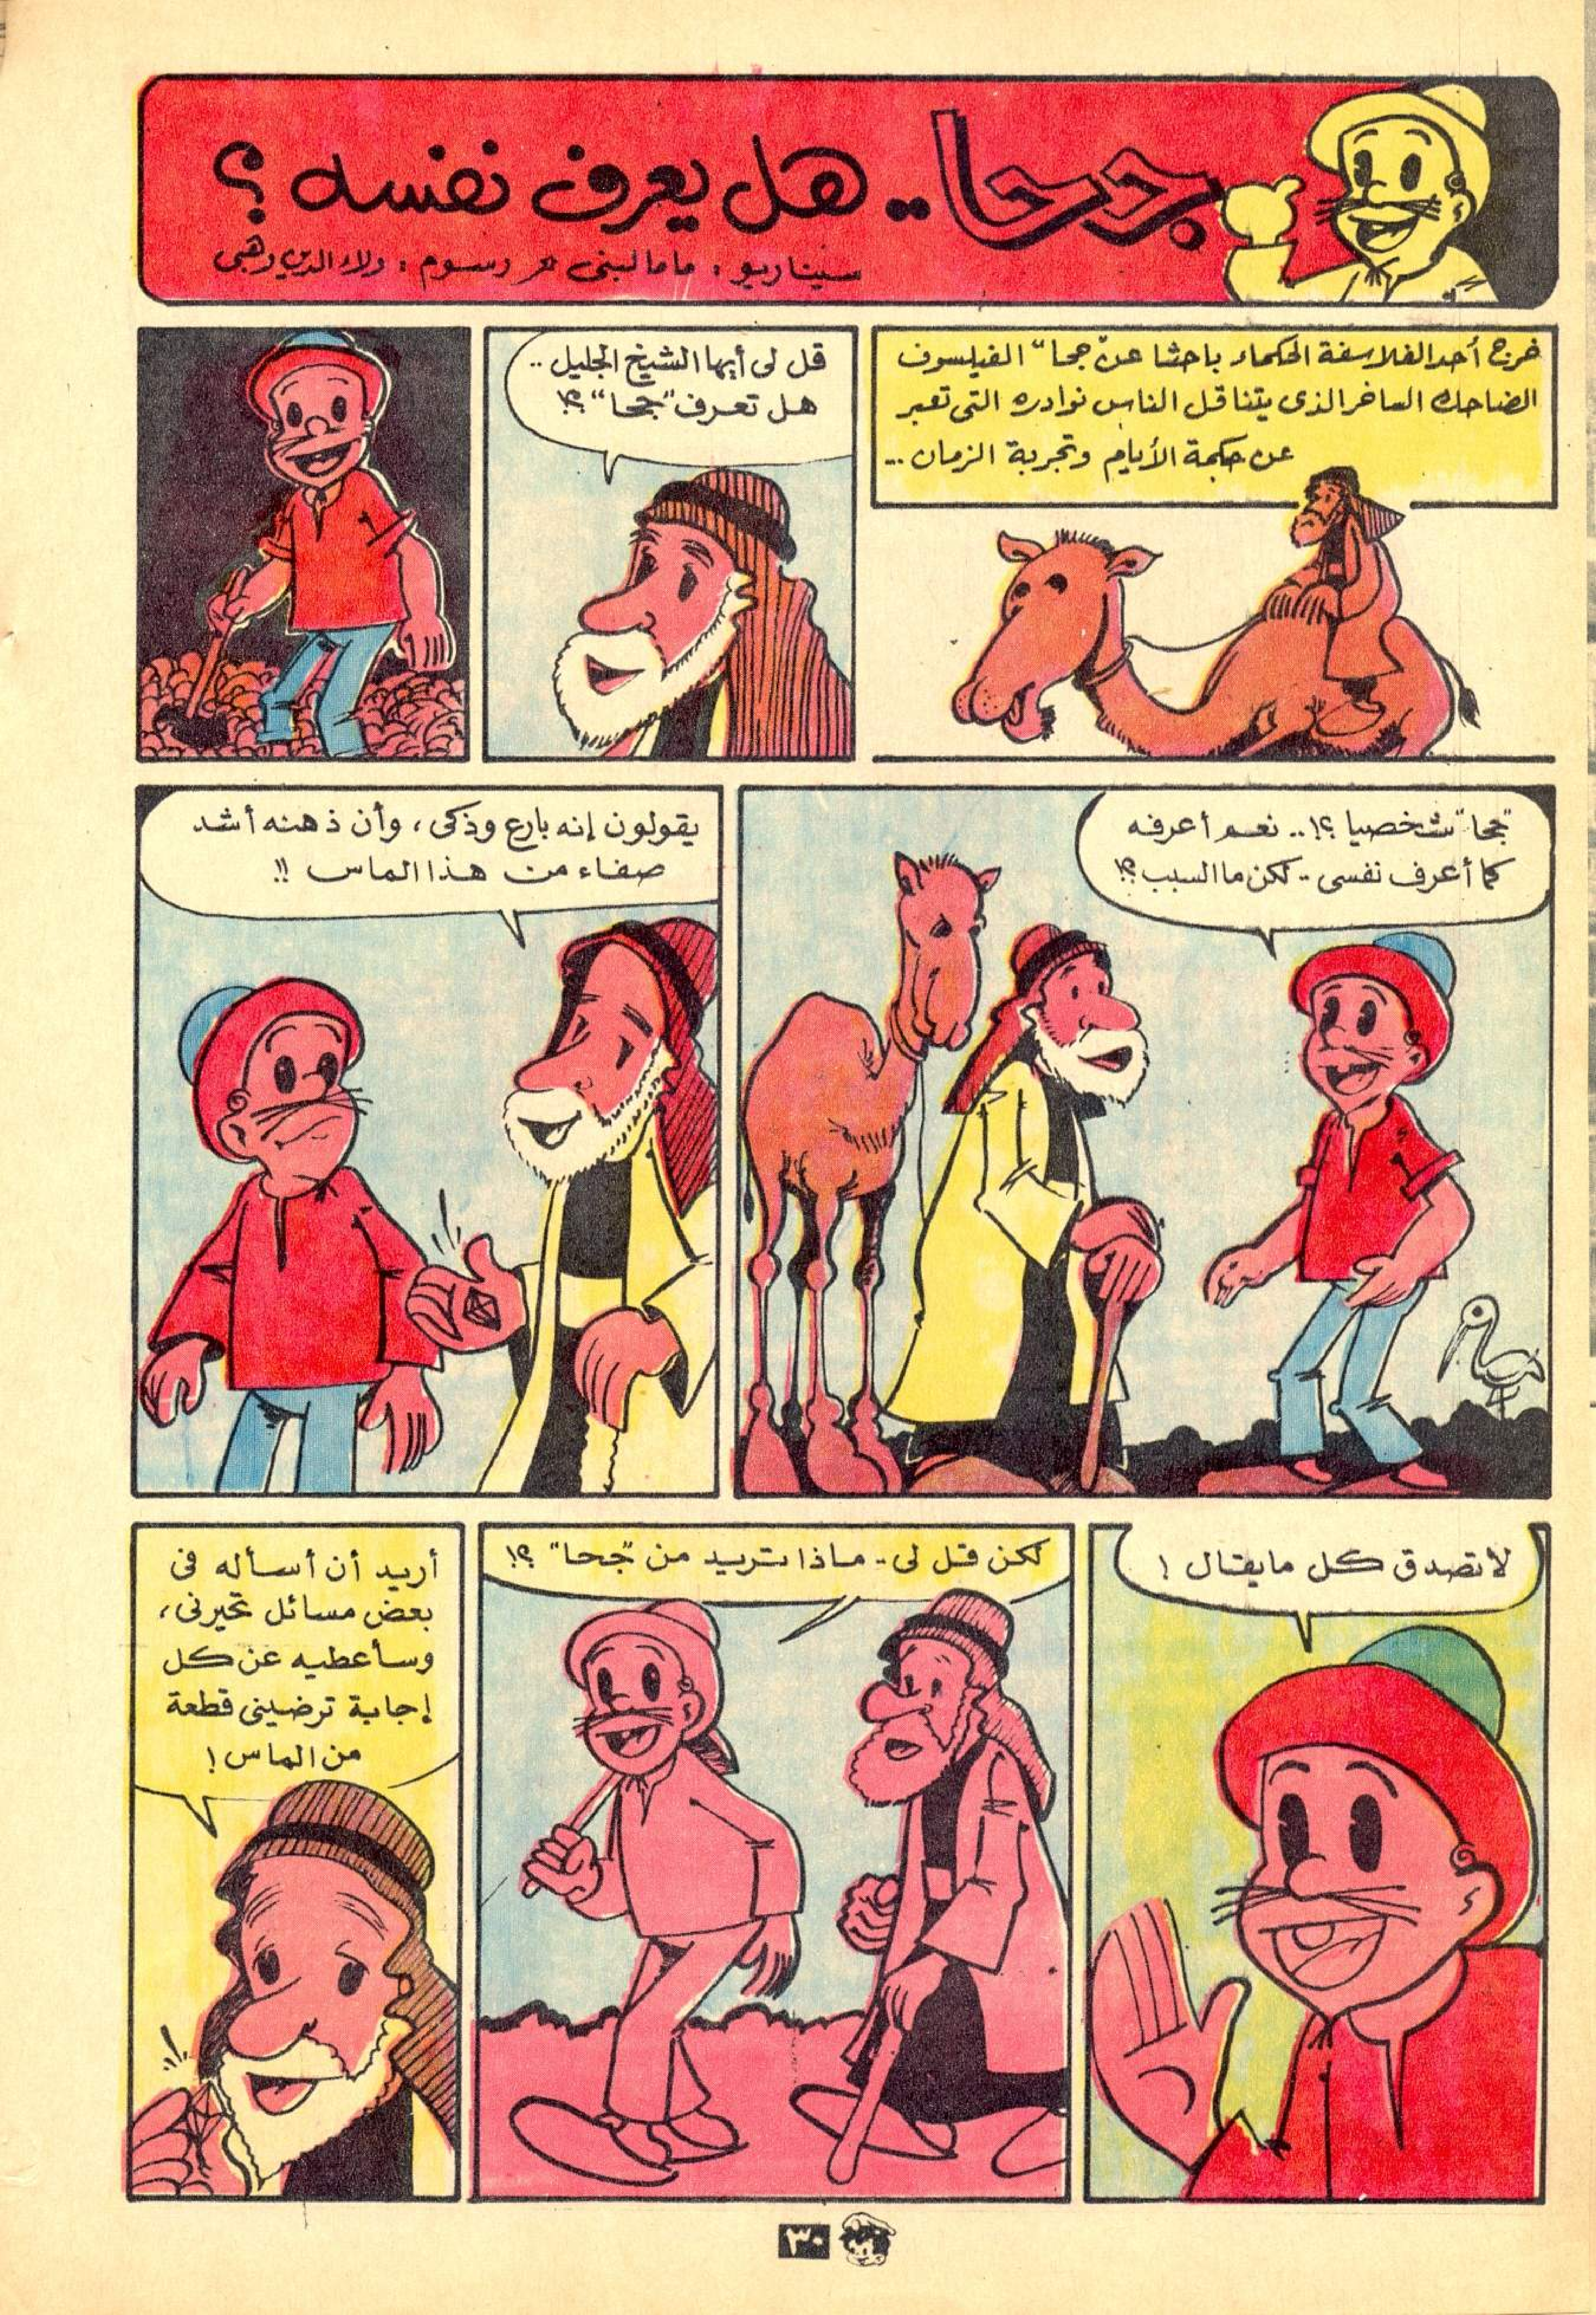 جحا.. هل يعرف نفسه ؟
سيناريو : ماما لبنى رسوم : ولاء الدين وهبى
خرج أحد الفلاسفة الحكماء باحثا عن "جحا" الفيلسوف
الضاحك الساخر الذى يتناقل الناس نوادره التى تعبر
عن حكمة الأيام وتجربة الزمان ...
قل لى أيها الشيخ الجليل ..
هل تعرف "جحا" ؟!
"جحا" شخصيا ؟!.. نعم أعرفه
كما أعرف نفسى .. لكن ما السبب ؟!
يقولون إنه بارع وذكى ، وأن ذهنه أشد
صفاء من هذا الماس !!
لا تصدق كل ما يقال !
لكن قل لى .. ماذا تريد من "جحا" ؟!
أريد أن أسأله فى
بعض مسائل تحيرنى ،
وسأعطيه عن كل
إجابة ترضينى قطعة
من الماس !
٣٠